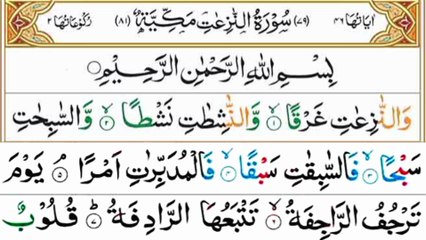 اٰیاتھا ۴۶ (۷۹) سُوْرَةُ النّٰزِعٰتِ مَكِّیَّةٌ (۸۱) رکوعاتھا ۲
بِسْمِ اللّٰهِ الرَّحْمٰنِ الرَّحِیْمِ
وَالنّٰزِعٰتِ غَرْقًا ۙ﴿۱﴾ وَّالنّٰشِطٰتِ نَشْطًا ۙ﴿۲﴾ وَّالسّٰبِحٰتِ
سَبْحًا ۙ﴿۳﴾ فَالسّٰبِقٰتِ سَبْقًا ۙ﴿۴﴾ فَالْمُدَبِّرٰتِ اَمْرًا ۘ﴿۵﴾ یَوْمَ
تَرْجُفُ الرَّاجِفَةُ ۙ﴿۶﴾ تَتْبَعُهَا الرَّادِفَةُ ؕ﴿۷﴾ قُلُوْبٌ